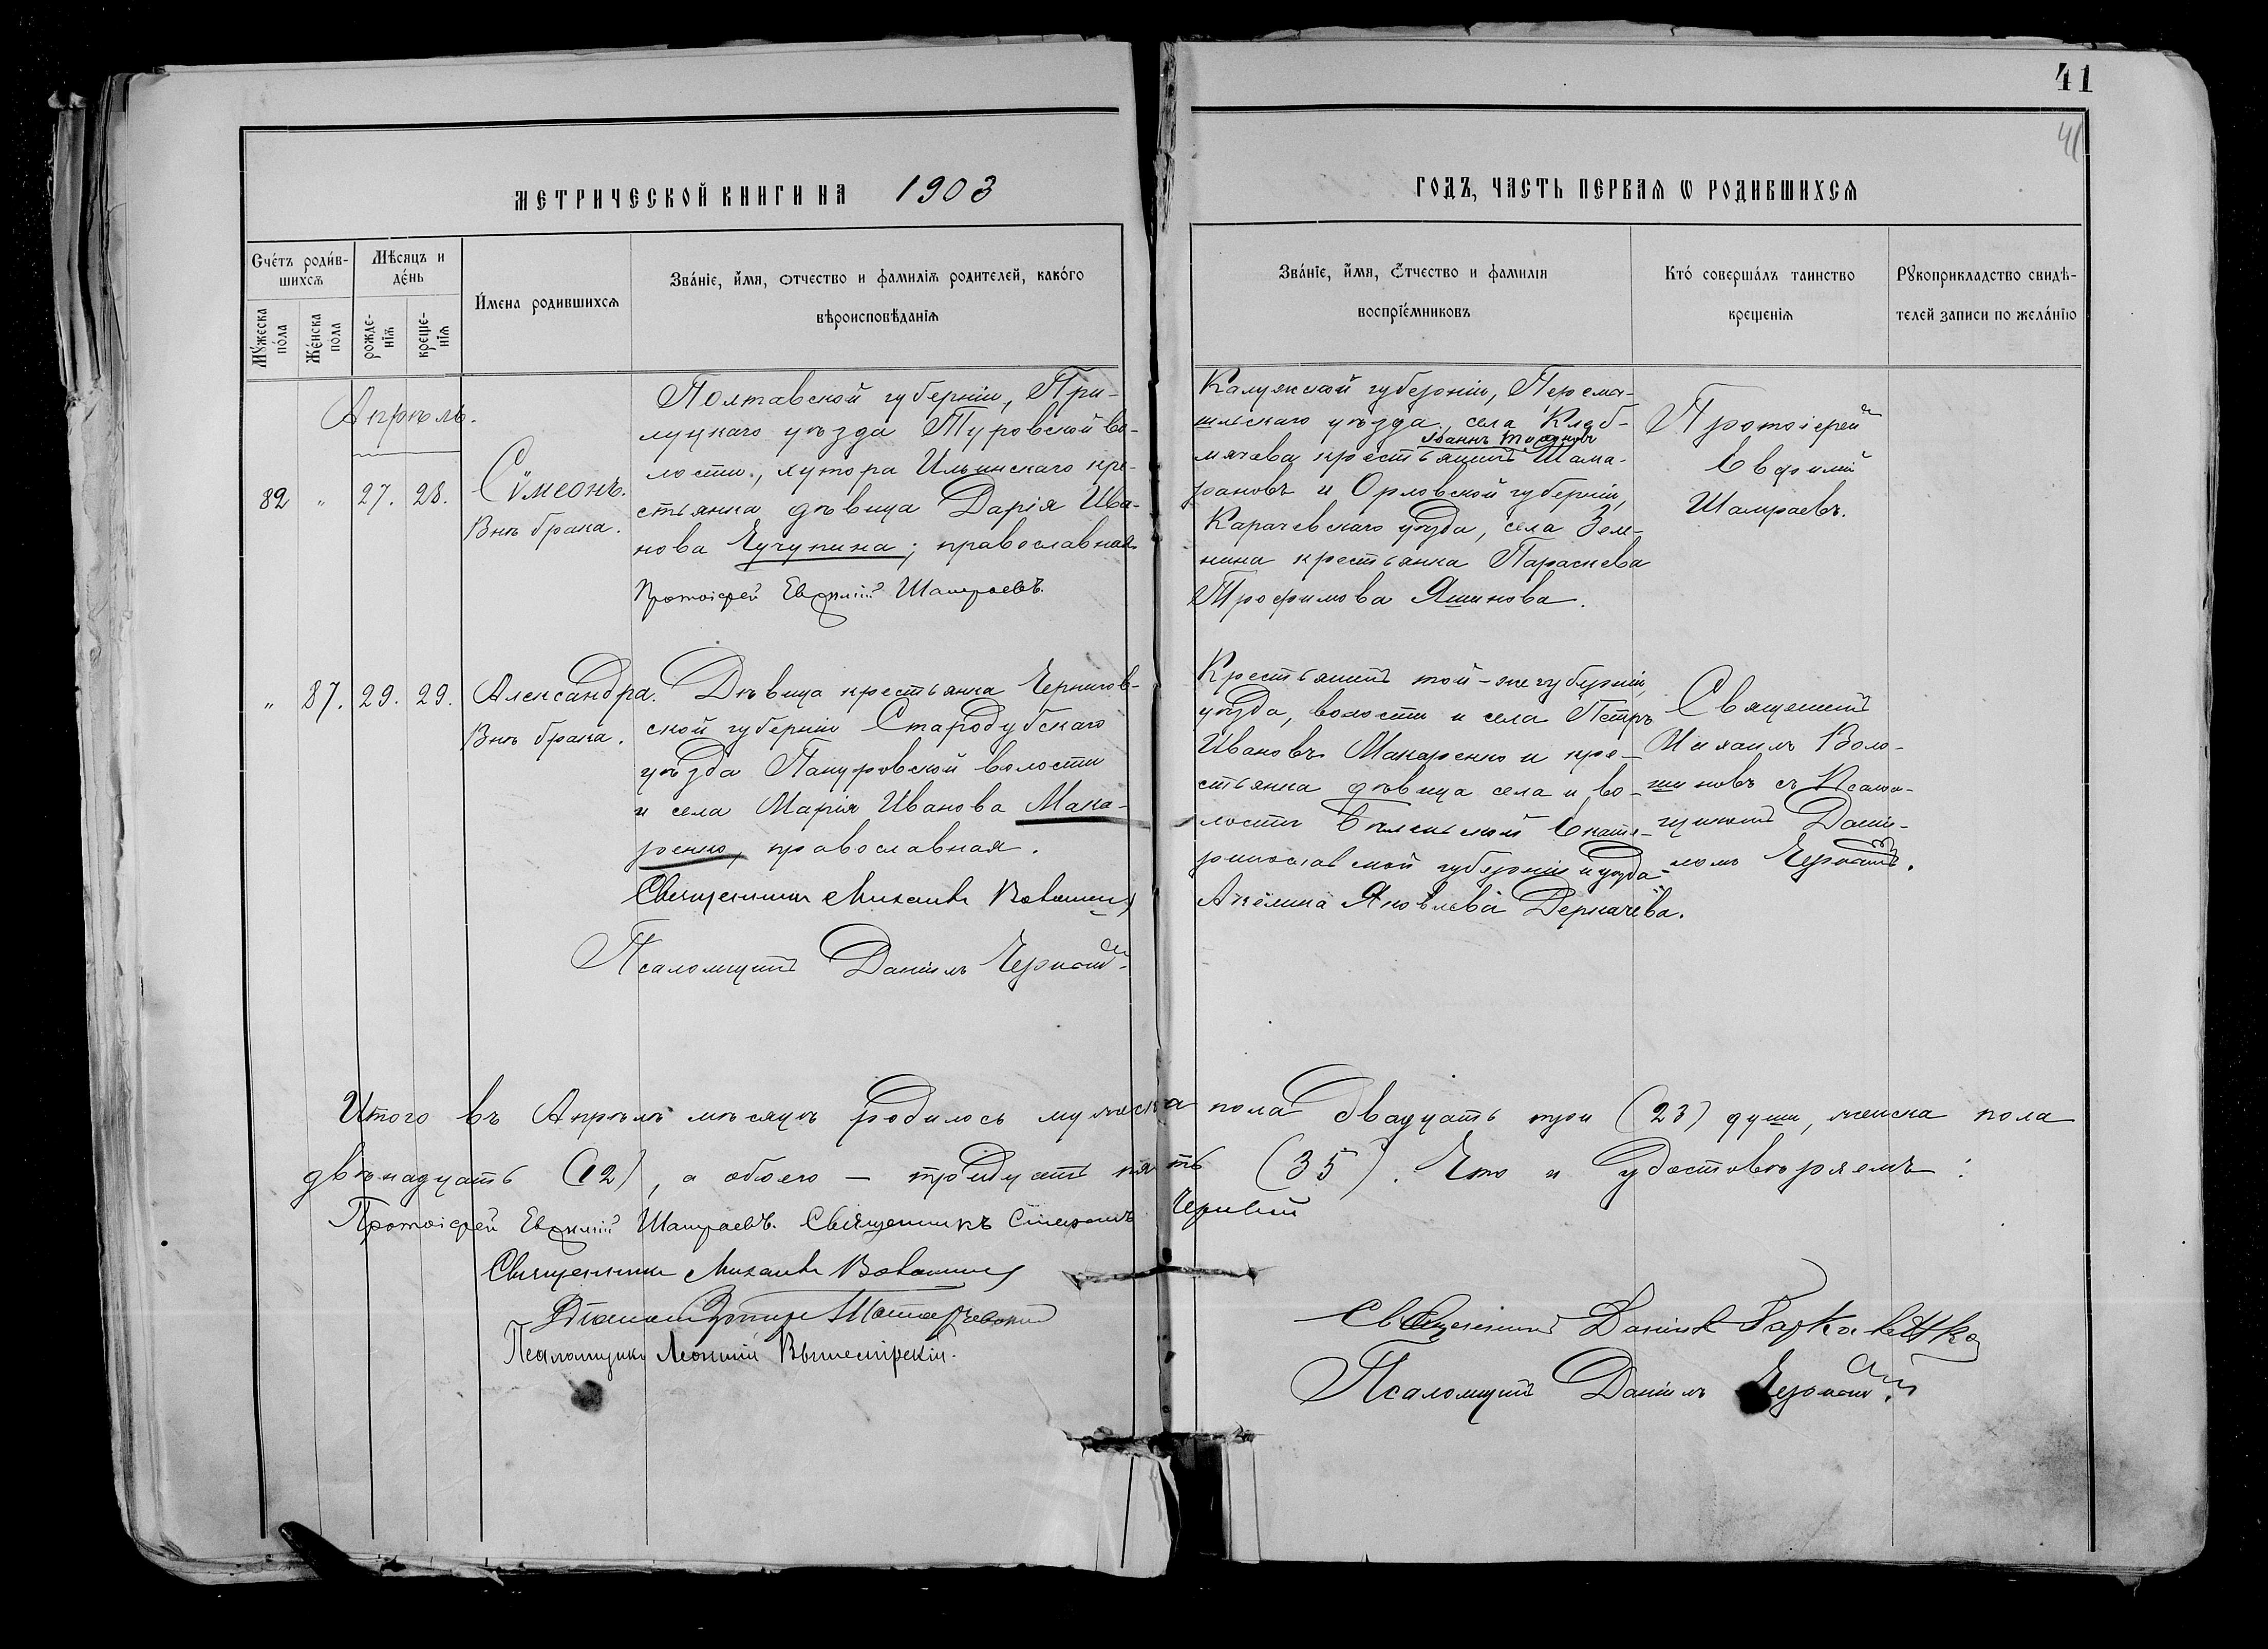 41
41
МЕТРИЧЕСКОЙ КНИГИ НА 1903
ГОДЪ, ЧАСТЬ ПЕРВАЯ Ѡ РОДИВШИХСЯ
Счéтъ роди́в-
шихся
Мѣ́сяцъ и
дéнь
Мꙋ́жеска
пóла
Жéнска
пола
рожде-
нія
креще-
нія
И́мена родившихся
Звáніе, и́мя, отчество и фамилія родителей, какóго
вѣроисповѣ́данія
Звáніе, и́мя, Ѻ́тчество и фамилія
воспріе́мниковъ
Ктó совершáлъ таинство
крещенія
Рꙋкоприкладство свидѣ́-
телей записи по желáнію
Апрѣль.
82 " 27. 28.
Сѷмеонъ.
Внѣ брака.
Полтавской губерніи, При-
луцкаго уѣзда Туровской во-
лости, хутора Ильинскаго кре-
стьянка дѣвица Дарія Ива-
нова Чучупина; православная
Протоіерей Евфимій Шамраевъ.
Калужской губерніи, Перемы-
шльскаго уѣзда, села
крестьянинъ Шама-
рановъ и Орловской губерніи,
Карачевскаго уѣзда, села Зел-
нина крестьянка Параскева
Трофимова Яшинова.
Протоіерей
Евфимій
Шамраевъ.
" 87. 29. 29.
Александра.
Внѣ брака.
Дѣвица крестьянка Чернигов-
ской губерніи Стародубскаго
уѣзда Пануровской волости
и села Марія Ивановa Мака-
ренко, православная.
Священникъ Михаилъ Волошинов
Псаломщикъ Даніилъ
Крестьянинъ той-же губерніи,
уѣзда, волости и села Петръ
Ивановъ Макаренко и кре-
стьянка дѣвица села и во-
лости Екате-
ринославской губерніи и уѣзда
Акелина Яковлева Деркачева.
Священникъ
Михаилъ Воло-
шиновъ съ Псалом-
щикомъ Дании-
ломъ
Итого въ Апрѣлѣ мѣсяцѣ родилось мужеска пола двадцать три (23) души, женска пола
двѣнадцать (12), а обоего — тридцать пять (35). Что и удостовѣряемъ:
Протоіерей Евфимій Шамраевъ. Священникъ Стефанъ
Священникъ Михаилъ Волошинов
Псаломщикъ Леонтій
Священникъ Даніилъ
Псаломщикъ Даніилъ